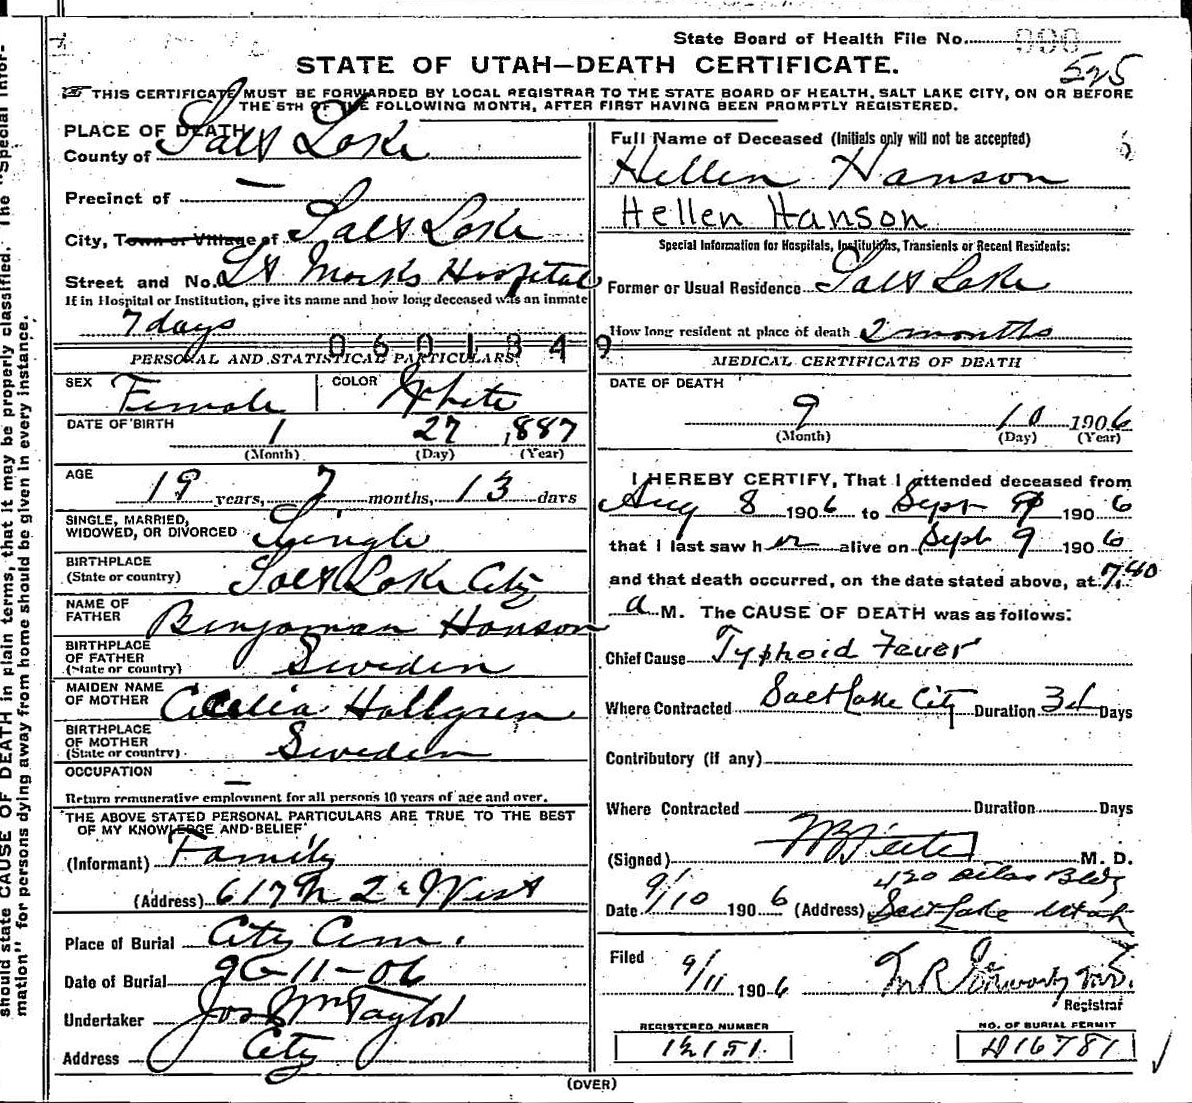 State Board of Health File No. 900
525
STATE OF UTAH—DEATH CERTIFICATE.
THIS CERTIFICATE MUST BE FORWARDED BY LOCAL REGISTRAR TO THE STATE BOARD OF HEALTH, SALT LAKE CITY, ON OR BEFORE
THE 5TH OF THE FOLLOWING MONTH, AFTER FIRST HAVING BEEN PROMPTLY REGISTERED.
PLACE OF DEATH
County of Salt Lake
Precinct of —
City, Town or Village of Salt Lake
Street and No. St Marks Hospital
If in Hospital or Institution, give its name and how long deceased was an inmate
7 days
0601349
PERSONAL AND STATISTICAL PARTICULARS.
SEX Female COLOR White
DATE OF BIRTH 1 27 1887
(Month) (Day) (Year)
AGE 19 years, 7 months, 13 days
SINGLE, MARRIED,
WIDOWED, OR DIVORCED Single
BIRTHPLACE
(State or country) Salt Lake City
NAME OF
FATHER Benjaman Hanson
BIRTHPLACE
OF FATHER
(State or country) Sweden
MAIDEN NAME
OF MOTHER Cecelia Hallgren
BIRTHPLACE
OF MOTHER
(State or country) Sweden
OCCUPATION —
Return remunerative employment for all persons 10 years of age and over.
THE ABOVE STATED PERSONAL PARTICULARS ARE TRUE TO THE BEST
OF MY KNOWLEDGE AND BELIEF
(Informant) Family
(Address) 617 N 2d West
Place of Burial City Cem.
Date of Burial 11-06
Undertaker Jos Wm Taylor
Address City
Full Name of Deceased (Initials only will not be accepted)
Hellen Hanson
Hellen Hanson
Special Information for Hospitals, Institutions, Transients or Recent Residents:
Former or Usual Residence Salt Lake
How long resident at place of death 2 months
MEDICAL CERTIFICATE OF DEATH
DATE OF DEATH
9 10 1906
(Month) (Day) (Year)
I HEREBY CERTIFY, That I attended deceased from
Aug 8 1906 to Sept 9 1906
that I last saw her alive on Sept 9 1906
and that death occurred, on the date stated above, at 7.40
a M. The CAUSE OF DEATH was as follows:
Chief Cause Typhoid Fever
Where Contracted Salt Lake City Duration Days
Contributory (if any)
Where Contracted Duration Days
(Signed) M. D.
420 Bldg
Date 9/10 1906 (Address) Salt Lake Utah
Filed 9/11 1906
Registrar
REGISTERED NUMBER
12151.
NO. OF BURIAL PERMIT
16781
(OVER)
should state CAUSE OF DEATH in plain terms, that it may be properly classified. The "Special Infor-
mation" for persons dying away from home should be given in every instance.